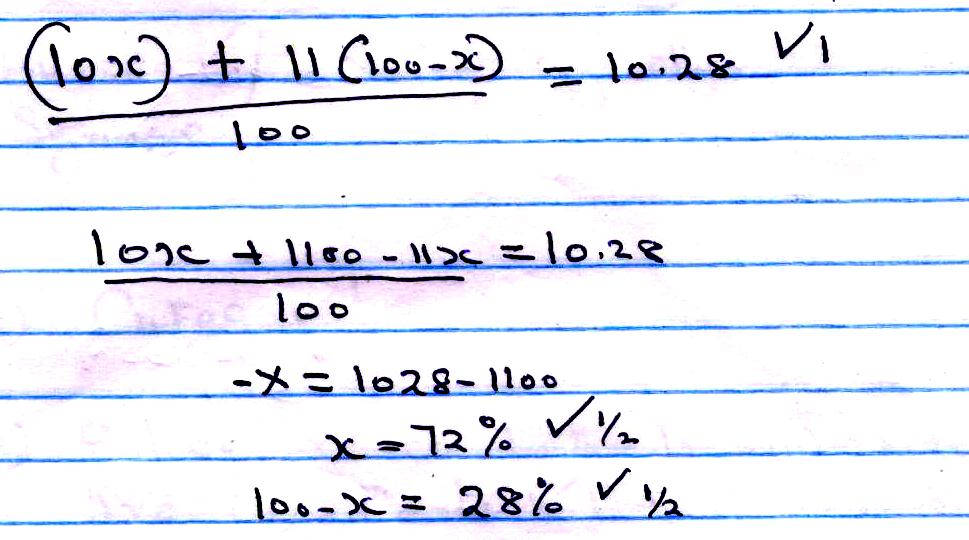 (10x) + 11(100-x) = 10.28 ✓1
100
10x + 1100 - 11x = 10.28
100
-x = 1028 - 1100
x = 72% ✓ 1/2
100-x = 28% ✓ 1/2